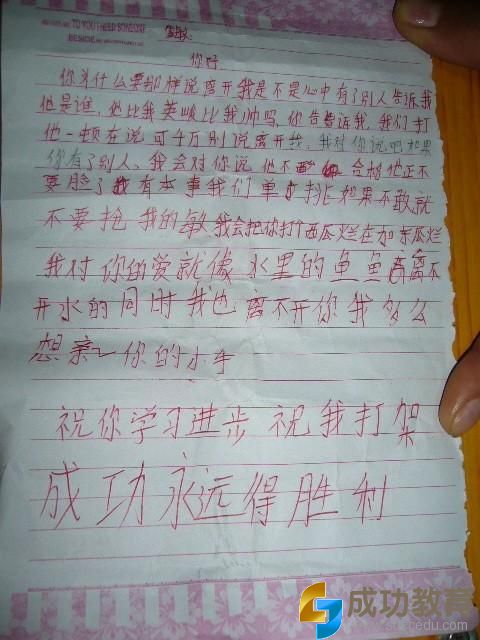 TO YOU I NEED SOMEONE
敏
你好
你为什么要那样说离开我是不是心中有了别人告诉我
他是谁,他比我英峻比我帅吗,你告告诉我,我们打
他一顿在说可千万别说离开我,我对你说吧如果
你有了别人、我会对你说,他不 合格他正不
要脸了我有本事我们单 挑如果不敢就
不要抢 我的敏 我会把你打个西瓜烂在加东瓜烂
我对你的爱就像 水里的鱼 鱼离不
开水的 同时 我也 离不开你 我多么
想亲一你的小手
祝你学习进步 祝我打架
成功永远得胜利
成功教育